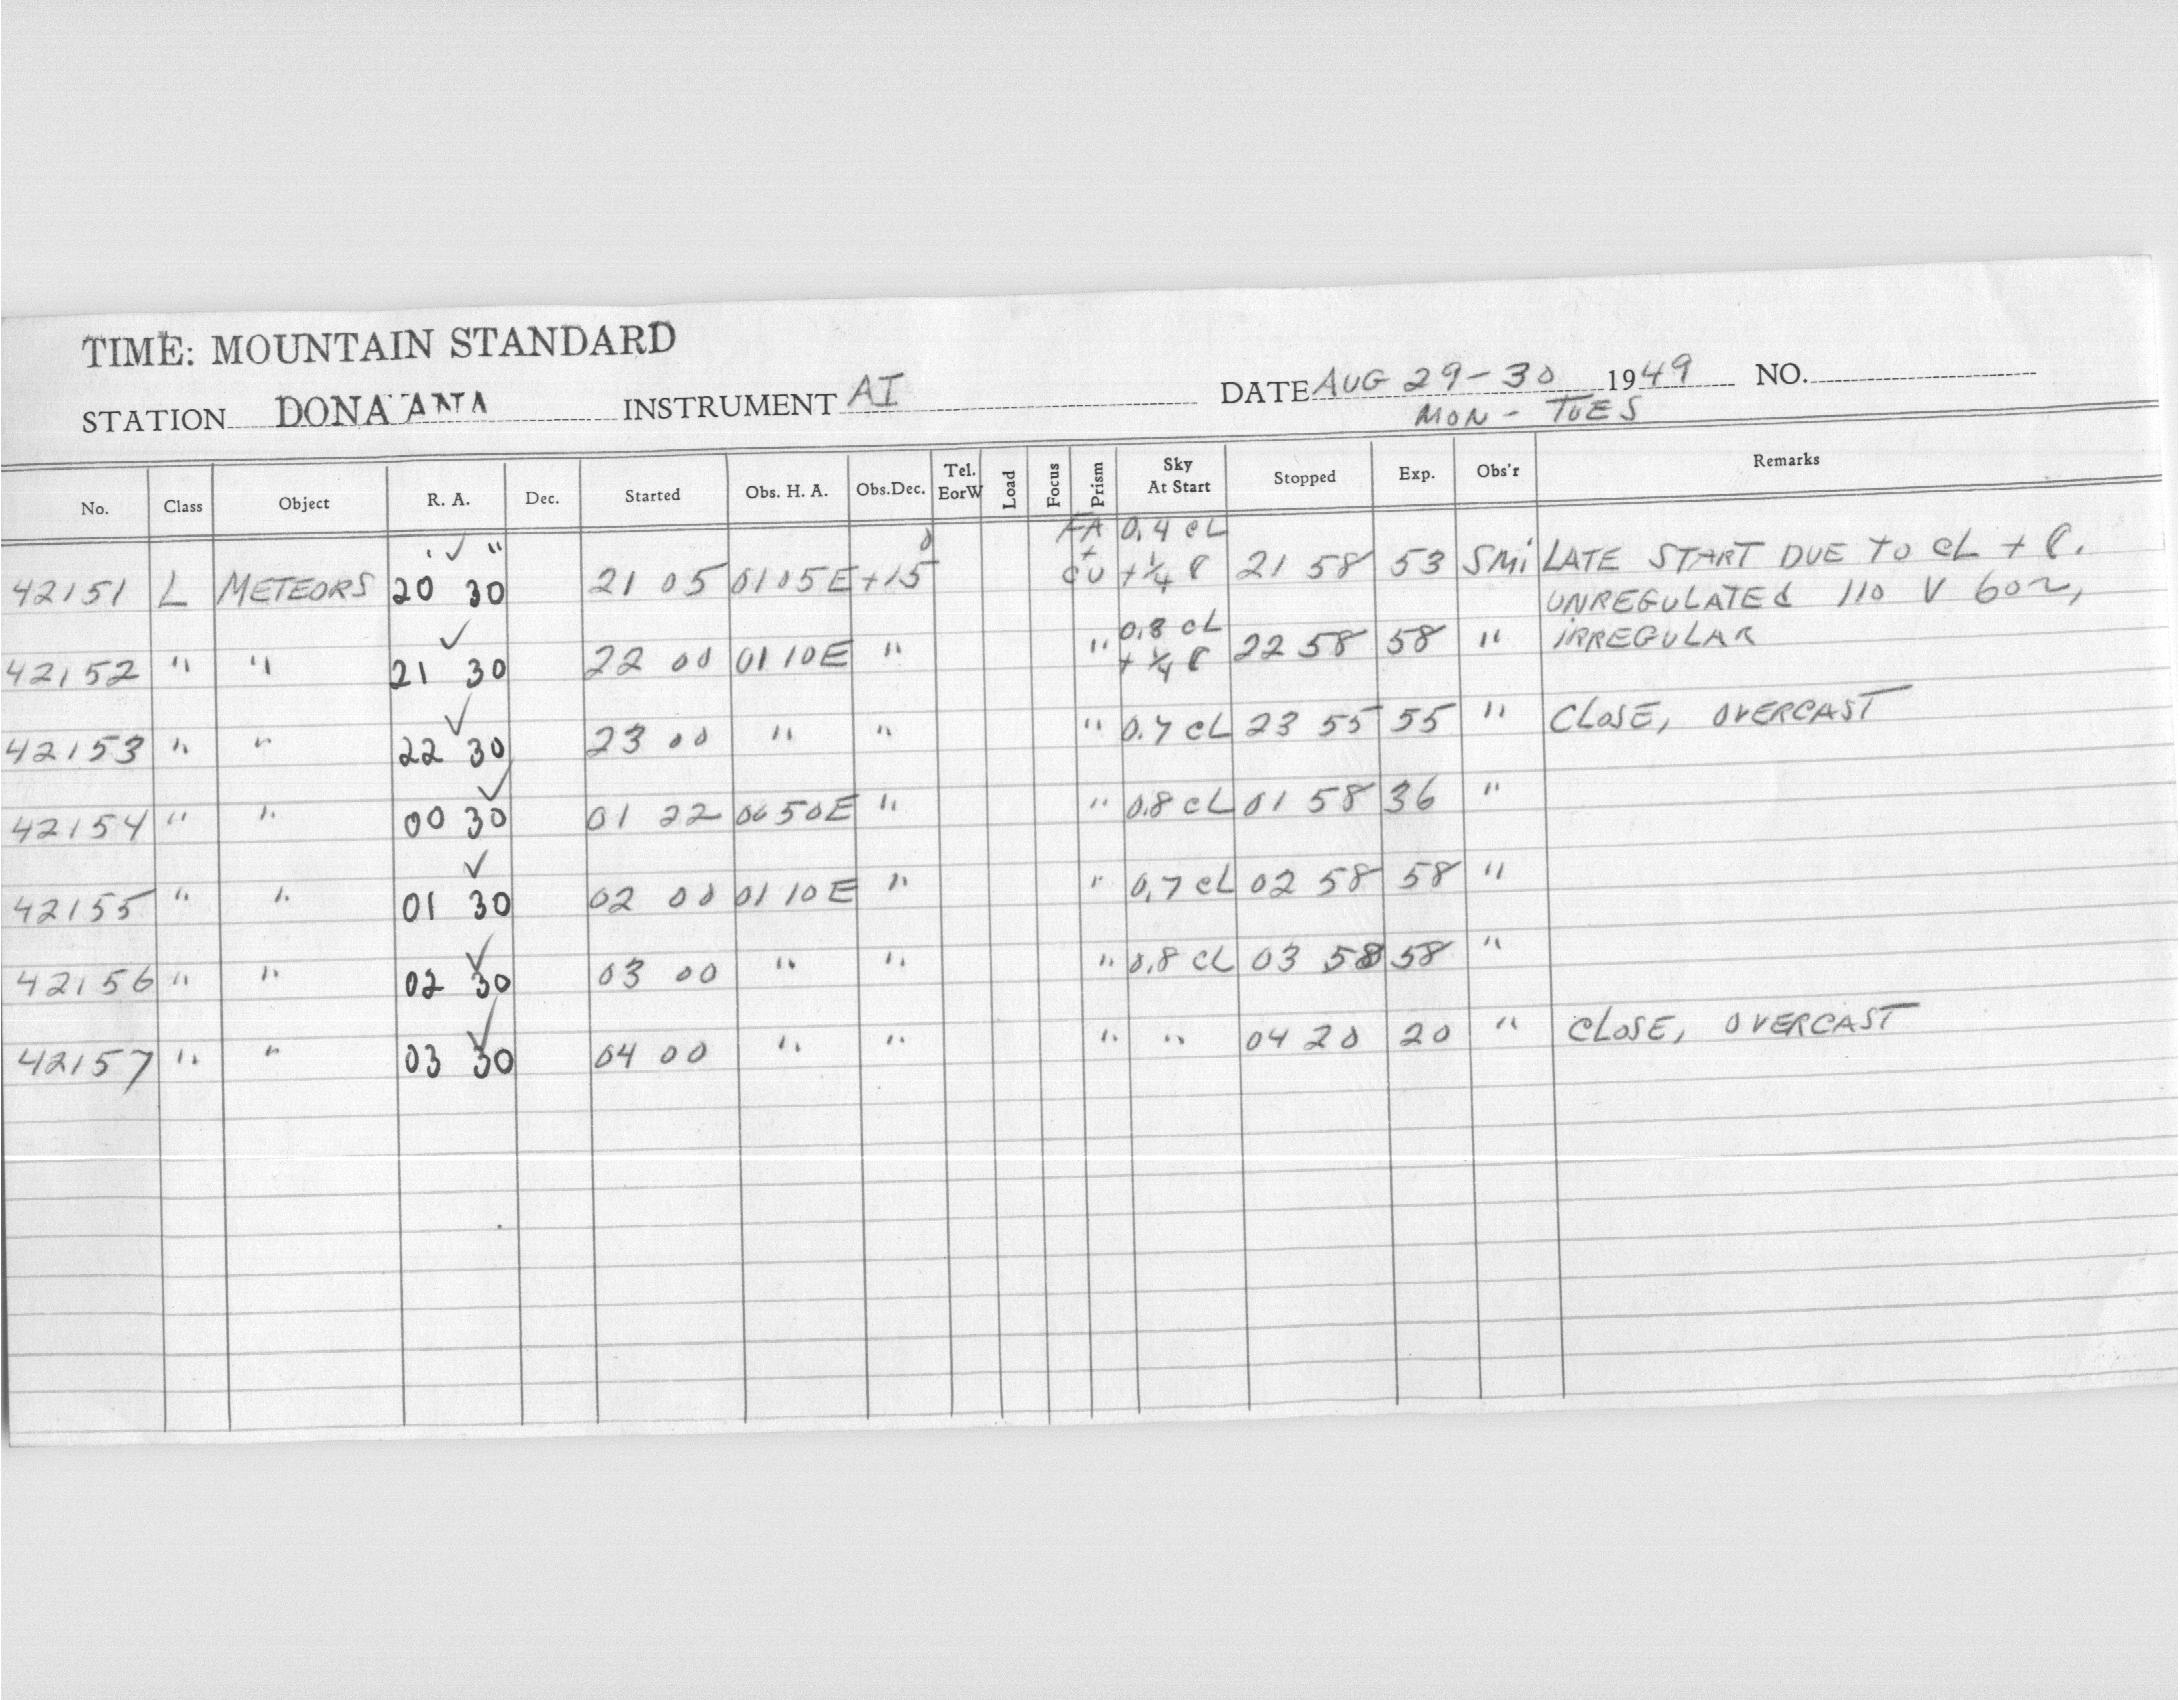 TIME: MOUNTAIN STANDARD
STATION DONA ANA INSTRUMENT AI DATE AUG 29-30 1949 NO.
MON - TUES
No. Class Object R. A. Dec. Started Obs. H. A. Obs.Dec. Tel. EorW Load Focus Prism Sky At Start Stopped Exp. Obs'r Remarks
42151 L METEORS 20 30 21 05 0105E +15 FA + CU 0.4 CL + 1/4 21 58 53 SMi LATE START DUE TO CL +
UNREGULATED 110 V 60~,
42152 " " 21 30 22 00 0110E " " 0.8 CL + 1/4 22 58 58 " IRREGULAR
42153 " " 22 30 23 00 " " " 0.7 CL 23 55 55 " CLOSE, OVERCAST
42154 " " 00 30 01 22 0050E " " 0.8 CL 01 58 36 "
42155 " " 01 30 02 00 0110E " " 0.7 CL 02 58 58 "
42156 " " 02 30 03 00 " " " 0.8 CL 03 58 58 "
42157 " " 03 30 04 00 " " " " 04 20 20 " CLOSE, OVERCAST